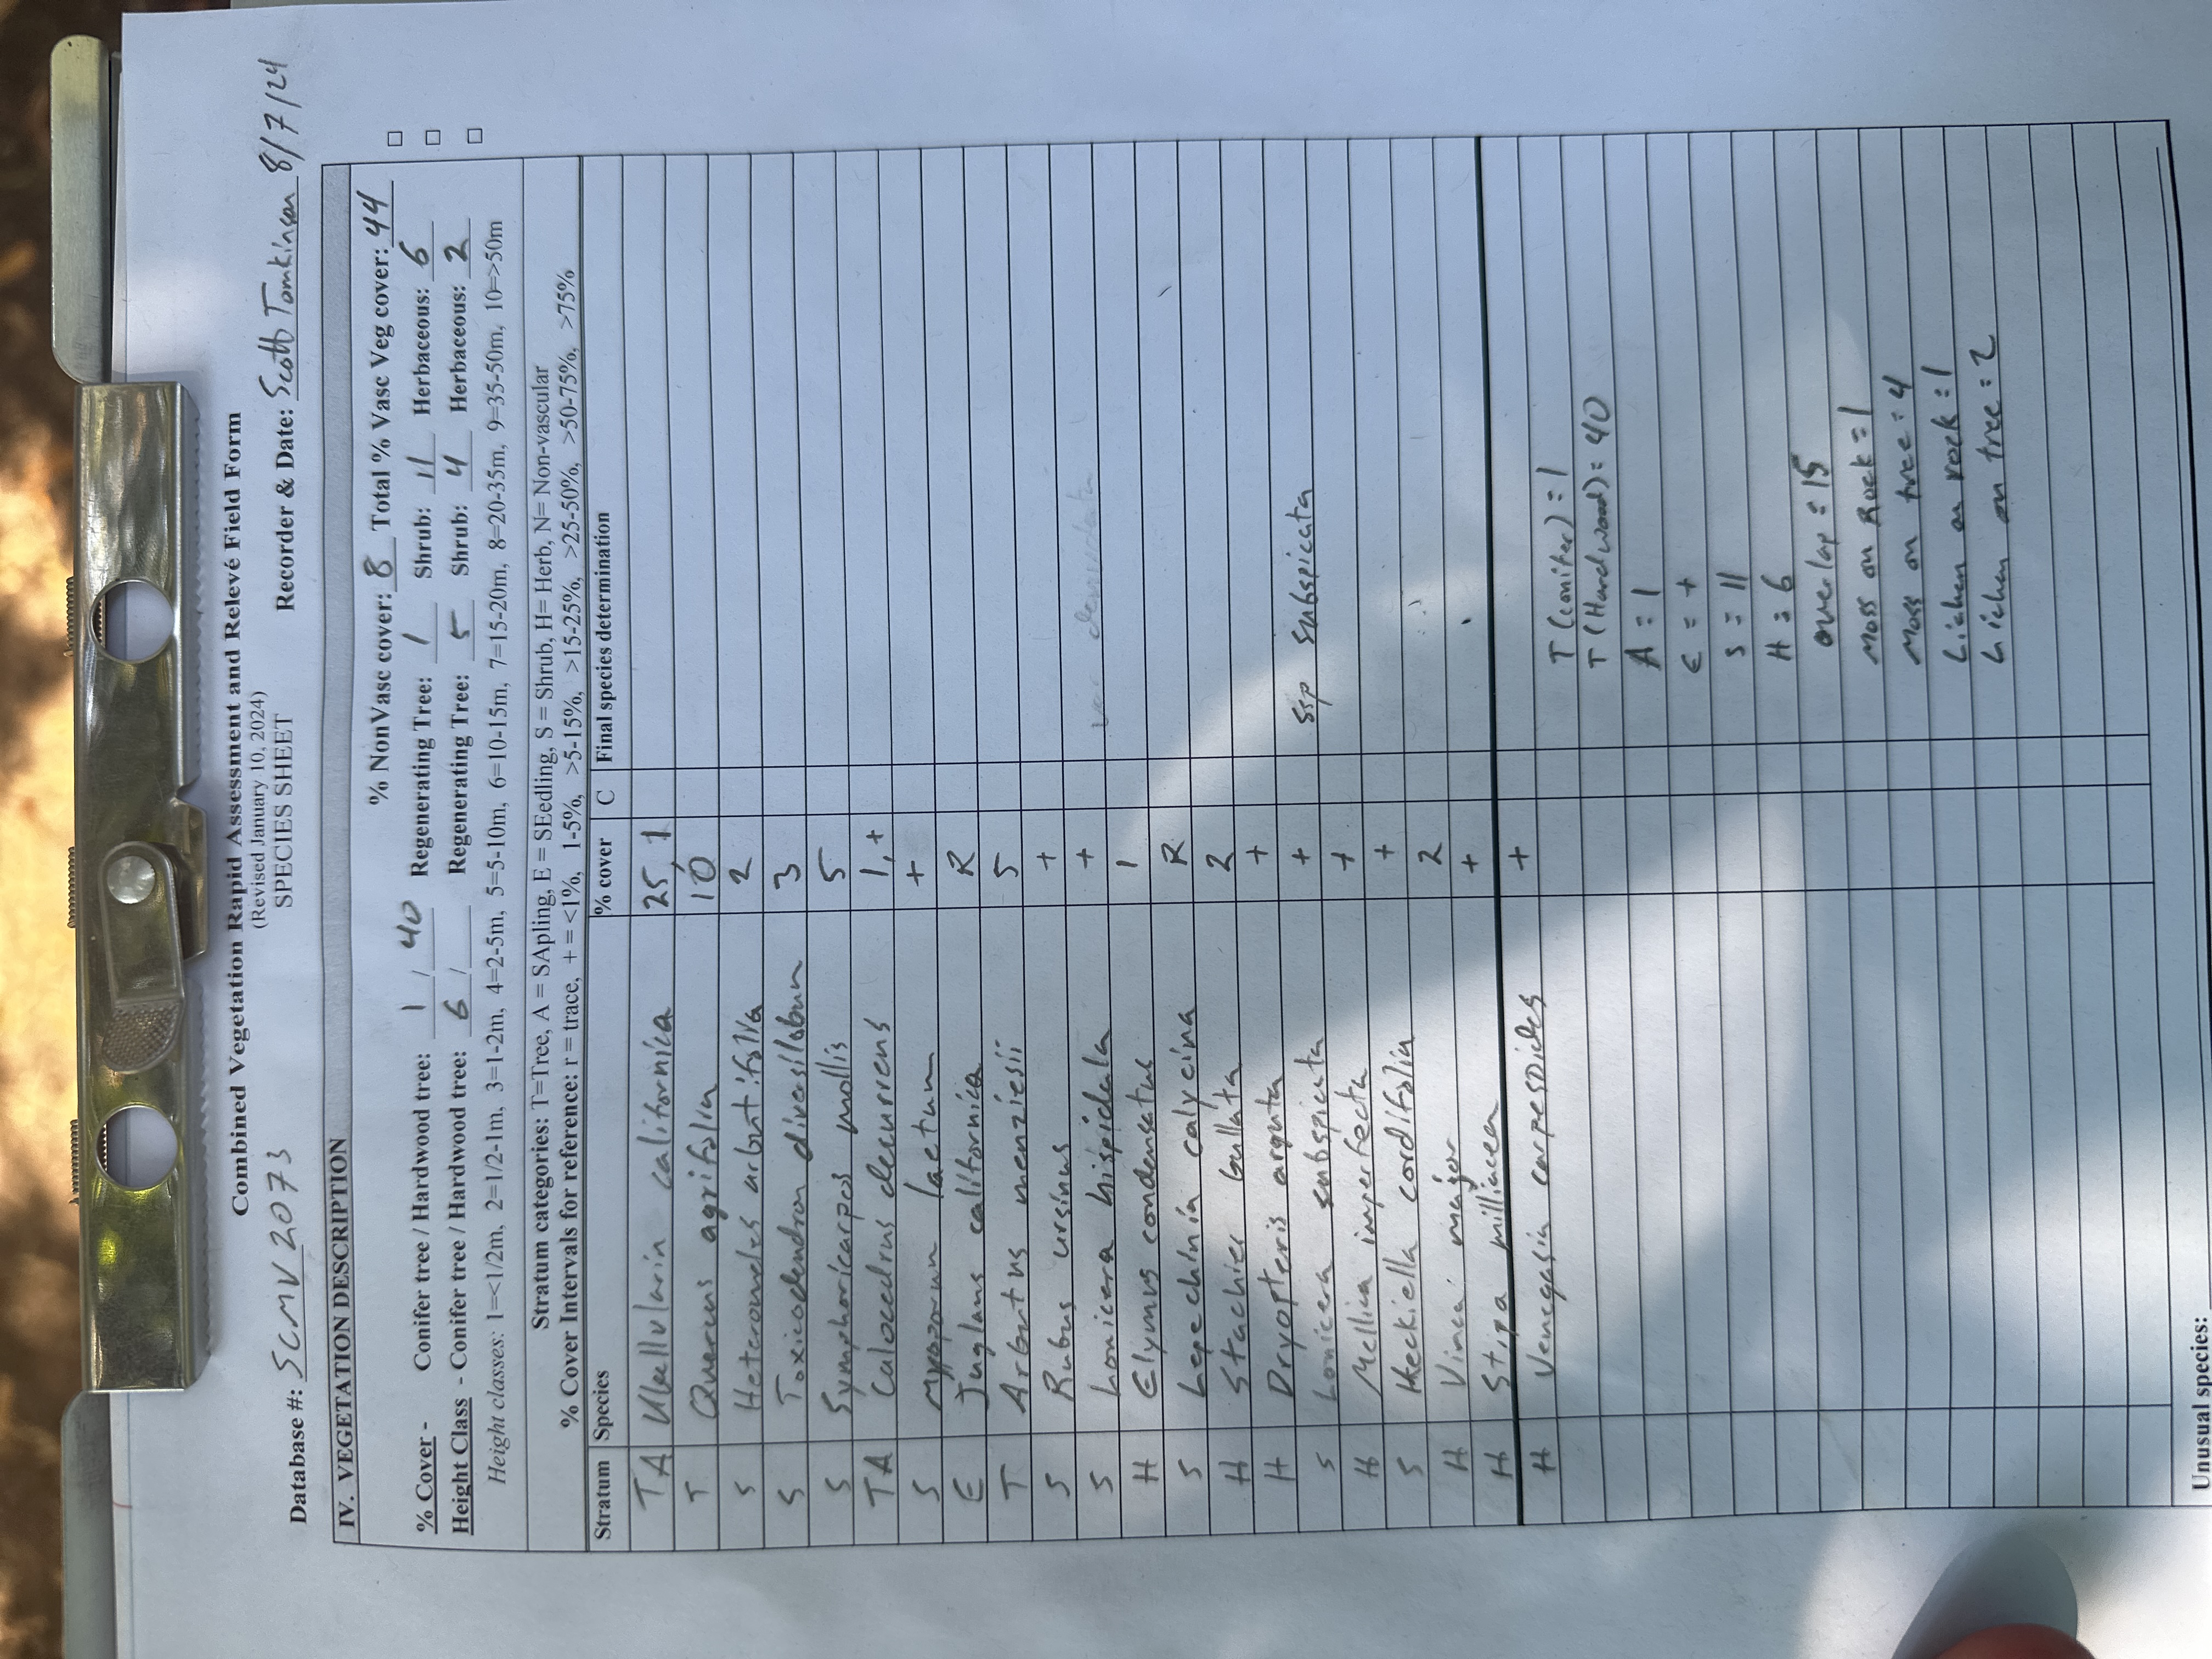 Combined Vegetation Rapid Assessment and Relevé Field Form
(Revised January 10, 2024)
SPECIES SHEET
Database #: SCMV 2073 Recorder & Date: Scott Tomkinson 8/7/24
IV. VEGETATION DESCRIPTION
% NonVasc cover: 8 Total % Vasc Veg cover: 44 □
% Cover - Conifer tree / Hardwood tree: 1 / 40 Regenerating Tree: 1 Shrub: 11 Herbaceous: 6 □
Height Class - Conifer tree / Hardwood tree: 6 / Regenerating Tree: 5 Shrub: 4 Herbaceous: 2 □
Height classes: 1=<1/2m, 2=1/2-1m, 3=1-2m, 4=2-5m, 5=5-10m, 6=10-15m, 7=15-20m, 8=20-35m, 9=35-50m, 10=>50m
Stratum categories: T=Tree, A = SApling, E = SEedling, S = Shrub, H= Herb, N= Non-vascular
% Cover Intervals for reference: r = trace, + = <1%, 1-5%, >5-15%, >15-25%, >25-50%, >50-75%, >75%
Stratum Species % cover C Final species determination
TA Ubellularia californica 25, 1
T Quercus agrifolia 10
S Heteromeles arbutifolia 2
S Toxicodendron diversilobum 3
S Symphoricarpos mollis 5
TA Calocedrus decurrens 1, +
S Myoporum laetum +
E Juglans californica R
T Arbutus menziesii 5
S Rubus ursinus +
S Lonicera hispidula + var denudata
H Elymus condensatus 1
S Lepechinia calycina R
H Stachies bullata 2
H Dryopteris arguta +
S Lonicera subspicata + ssp subspicata
H Mellica imperfecta +
S Keckiella cordifolia +
H Vinca major 2
H Stipa miliacea +
H Venegasia carpesoides +
T (conifer) = 1
T (Hardwood) = 40
A = 1
E = +
S = 11
H = 6
overlap = 15
Moss on Rock = 1
Moss on tree = 4
Lichen on rock = 1
Lichen on tree = 2
Unusual species: